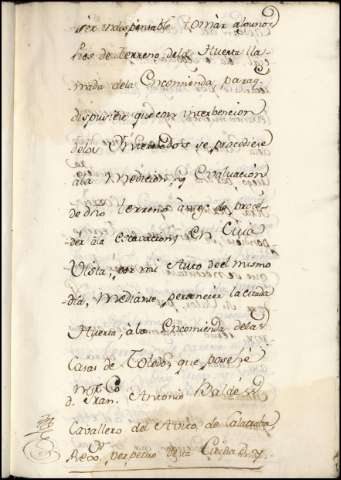 ser indispensable tomar algunos
Pies de terreno dela Huerta lla-
mada dela Encomienda paraq
dispusiese que con interbencion
delos se procediese
ala Medicion, y Evaluacion
de dho terreno antes de proce-
der ala Excavacion; En Cuia
Vista, por mi Auto de el mismo
dia, Mediante, pertenecer la citada
Huerta, ala Encomienda delas
Casas de Toledo, que posehe
D. Fran. Antonio
Cavallero del Avito de Calatraba,
Rexor perpetuo desta Ciudad